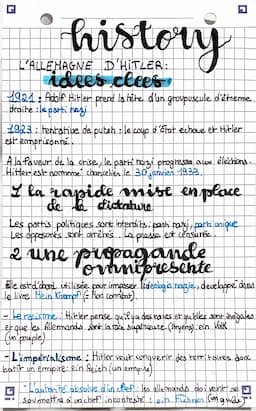 history
L'ALLEMAGNE D'HITLER:
idées clées
1921 : Adolf Hitler prend la tête d'un groupuscule d'extrême
droite : le parti nazi
1923 : tentative de putsh : le coup d'Etat echoue et Hitler
est emprisonné.
A la faveur de la crise, le parti nazi progresse aux élections.
Hitler est nommé chancelier le 30 janvier 1933.
1 la rapide mise en place
de la dictature
Les partis politiques sont interdits : parti nazi, parti unique
Les opposants sont arrêtés. La presse est censurée.
2 une propagande
omnipresente
Elle est d'abord utilisée pour imposer l'idéologie nazie, developpée dans
le livre Mein Kampf (= Mon combat).
- Le racisme : Hitler pense qu'il y a des races et qu'elles sont inégales
et que les Allemands sont la race supérieure (Aryens) : ein Volk
(un peuple)
- L'impérialisme : Hitler veut conquerir des territoires pour
batir un empire : ein Reich (un empire)
- L'autorité absolue d'un chef : les allemands doivent se
soumettre a un chef incontesté : ein Führer (un guide)